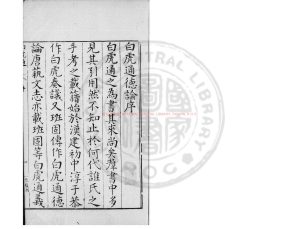 白虎通德論序
白虎通之為書其來尚矣羣書中多
見其引用然不知出於何代誰氏之
手考之載籍始於漢建初中淳于恭
作白虎奏議又班固傳作白虎通德
論唐藝文志亦載班固等白虎通義
CENTRAL LIBRARY